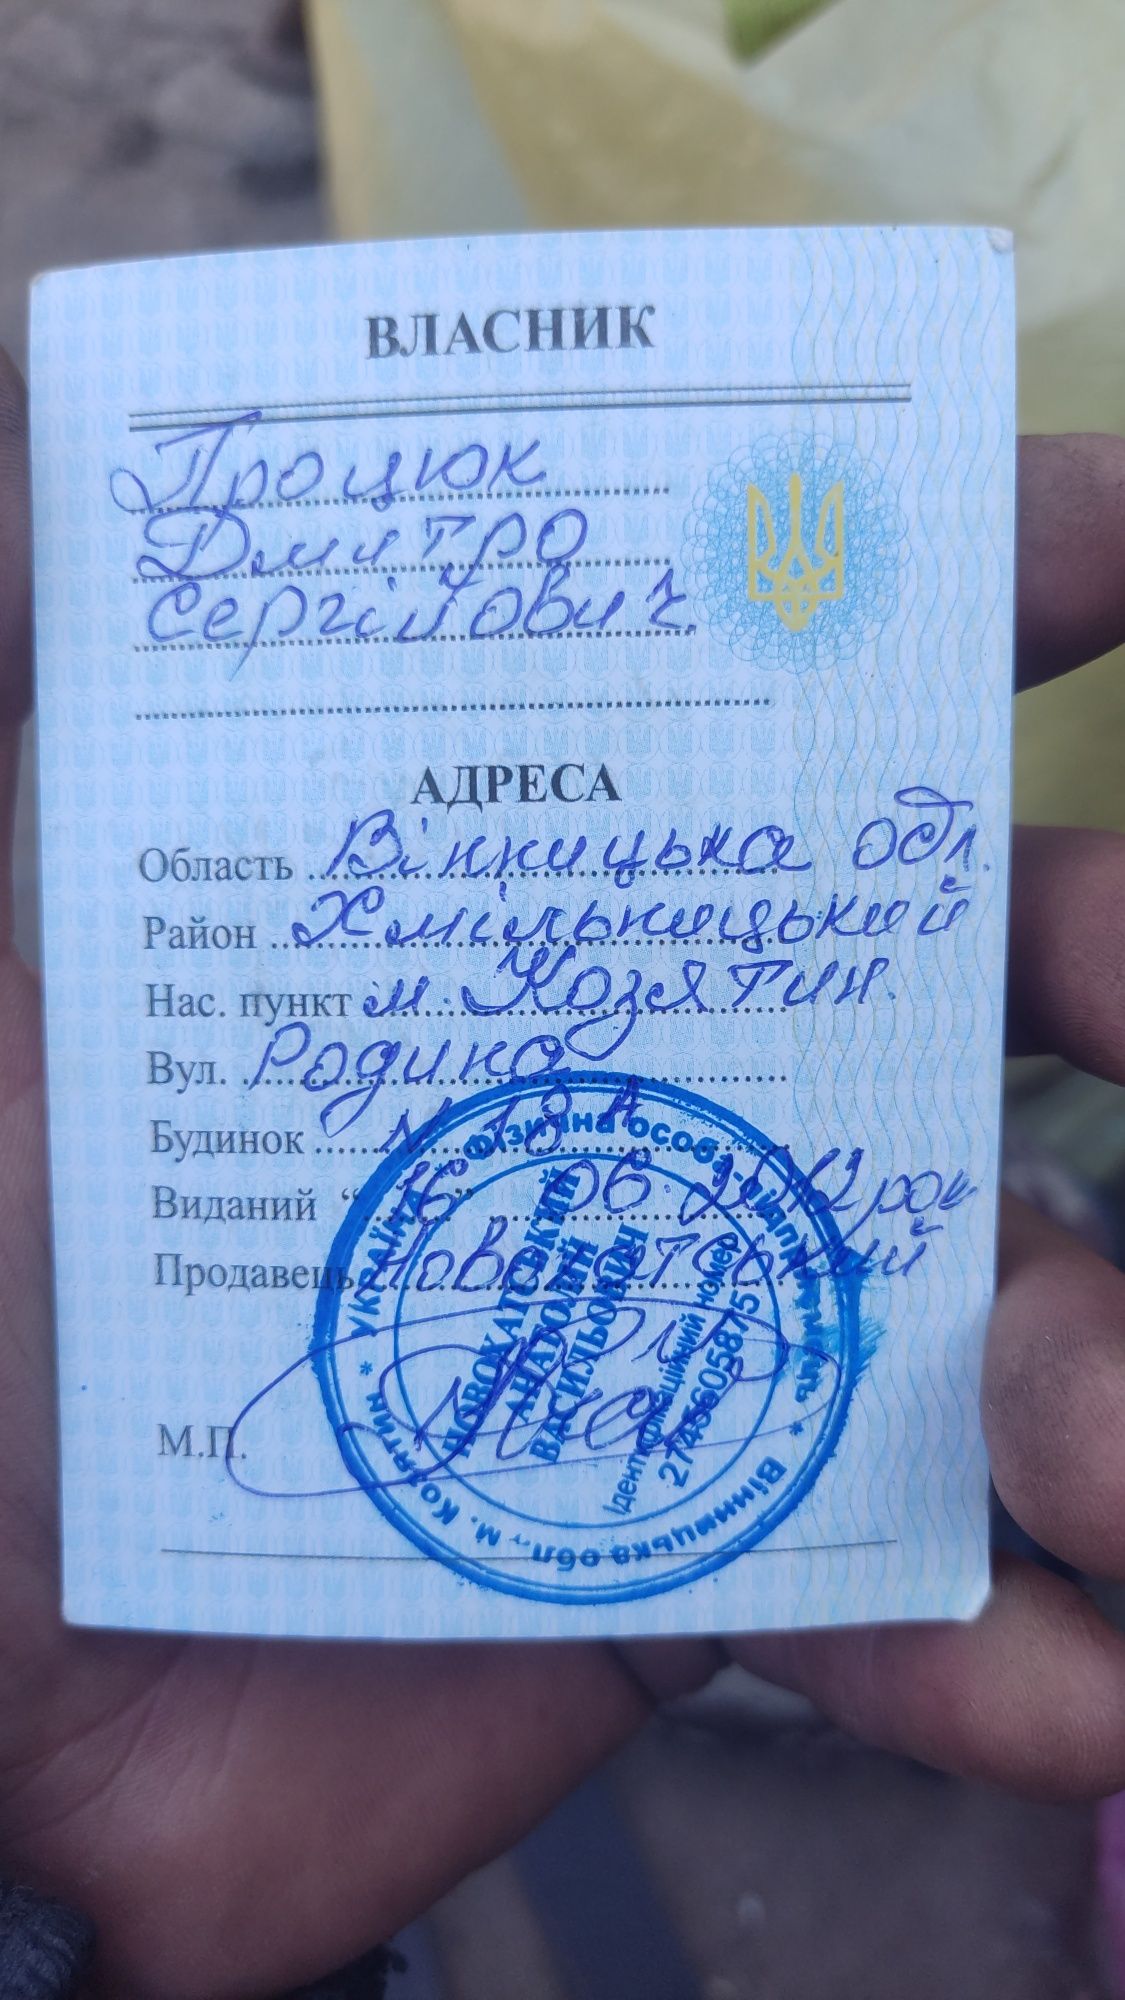 ВЛАСНИК
Процюк
Дмитро
Сергійович.
АДРЕСА
Область Вінницька обл.
Район Хмільницький
Нас. пункт м. Козятин.
Вул. Родина
Будинок № 18 А
Виданий “16” 06 рок
Продавець Новохатський
М.П.
* Україна * Фізична особа-підприємець * Вінницька обл., м. Козятин
НОВОХАТСЬКИЙ
АНАТОЛІЙ
ВАСИЛЬОВИЧ
Ідентифікаційний номер